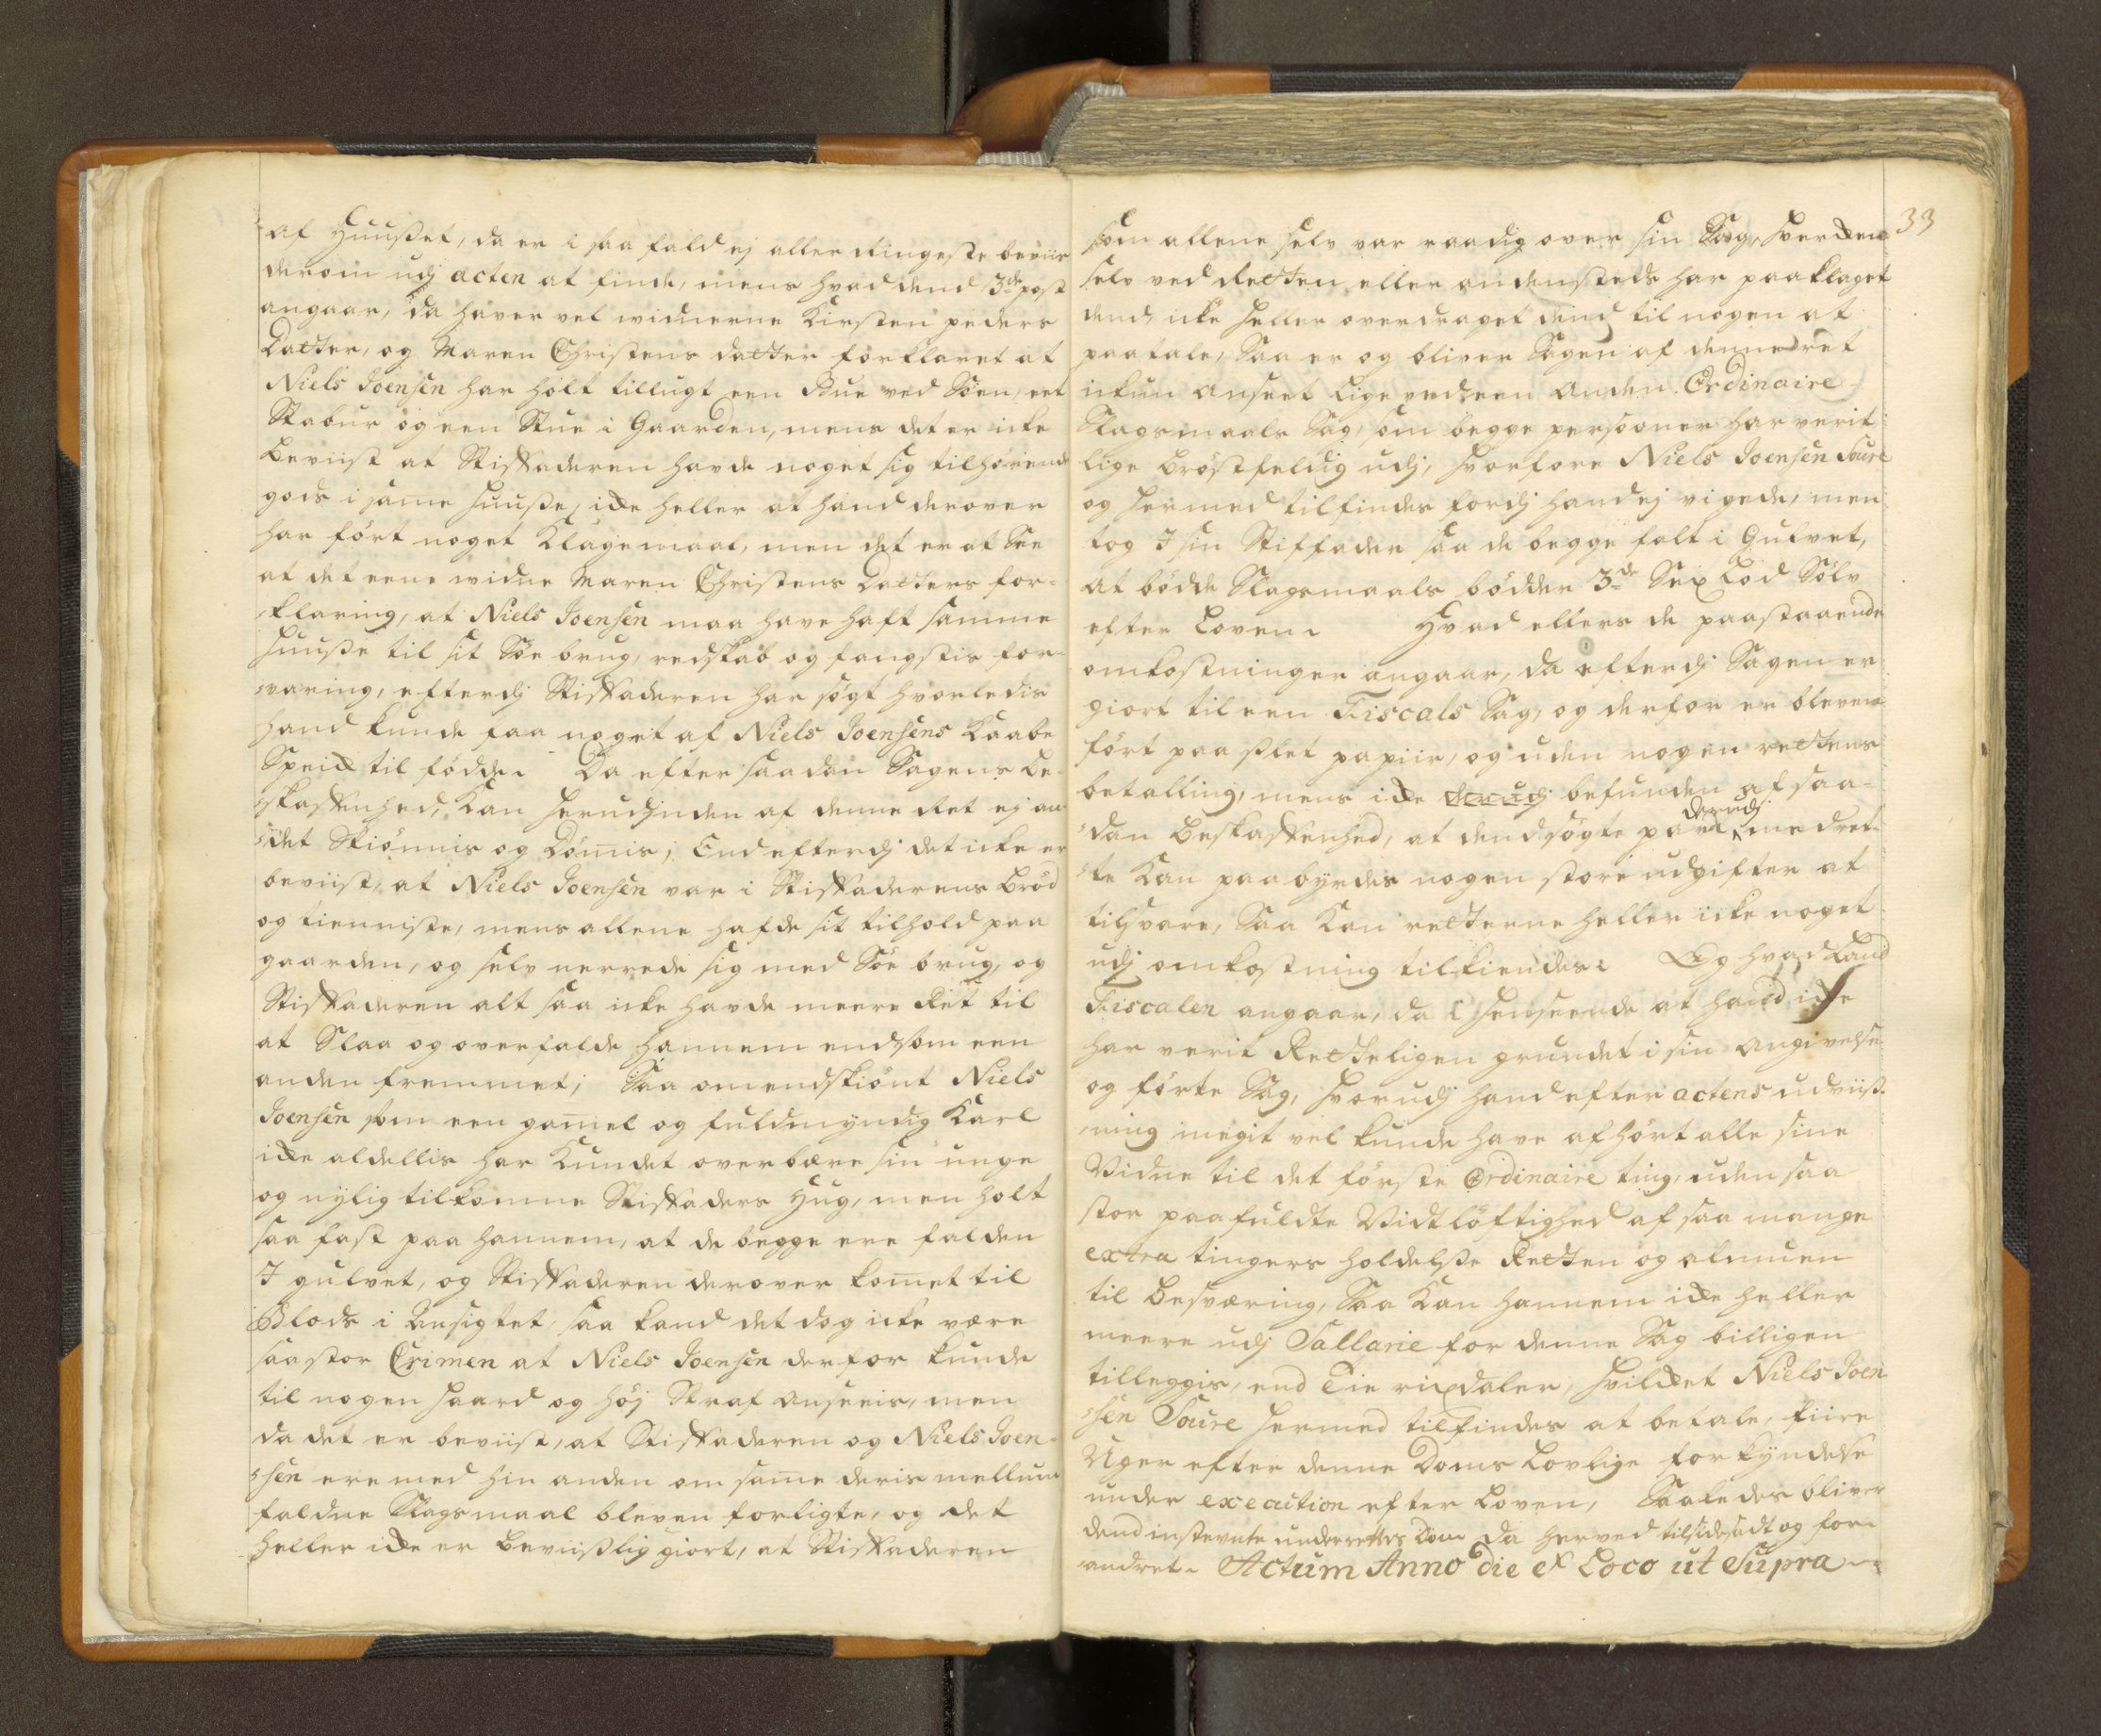 af Huuset, da er i saa fald ej aller Ringeste beviis
derom udj acten at finde, mens hvad dend 3de post
angaar, da haver vel widnerne Kirsten peders
Datter, og Maren Christens datter forklaret at
Niels Joensen har holt tillugt een Bue ved Søen, eet
Stabur og een Stue i Gaarden, mens det er icke
Beviist at Stiffaderen havde noget sig tilhørende
gods i samme Huuse, icke heller at hand derover
har ført noget Klagemaal, men det er at See
at det eene widne Maren Christens Datters for-
klaring, at Niels Joensen maa have haft samme
Huuse til sit Søe brug, redskab og fangstis for-
varing, efterdj Stiffaderen har søgt hvorledis
hand kunde faa noget af Niels Joensens Kaabe
til fødde. Da efter saadan Sagens Be-
skaffenhed, Kan herudjnden af denne Ret ej an-
det Skiønnis og Dømis; End efterdj det icke er
beviist, at Niels Joensen var i Stiffaderens Brød
og tienniste, mens allene hafde sit tilhold paa
gaarden, og selv nerrede sig med Søe brug, og
Stiffaderen alt saa icke havde meere Ret til
at Slaa og overfalde hannem end som een
anden fremmet; Saa omendskiønt Niels
Joensen som een gamel og fuldmyndig Karl
icke aldellis har Kundet overbære sin unge
og nylig tilkomne Stiffaders Hug, men holt
saa fast paa hannem, at de begge ere falden
I gulvet, og Stiffaderen derover komet til
Blods i Ansigtet, saa kand det dog icke være
saa stor Crimen at Niels Joensen derfor kunde
til nogen haard og høj Straf anseeis, men
da det er beviist, at Stiffaderen og Niels Joen-
sen ere med hin anden om same deris mellum
faldne Slagsmaal bleven forligte, og det
heller icke er Beviislig giort, at Stiffaderen
33
som allene selv var raadig over sin Sag, hverken
selv ved Retten eller andensteds har paaklaget
dend, icke heller overdraget dend til nogen at
paatale, Saa er og bliver Sagen af denne ret
ickun anseet lige ved een anden Ordinaire
Slagsmaals Sag, som begge persooner har verit
lige Brøstfeldig udj, hvorfore Niels Joensen Soure
og hermed tilfindes fordj hand ej vigede, men
tog I sin Stiffader saa de begge falt i Gulvet,
at bødde Slagsmaals bødder 3de Sex Lod Sølv
efter Loven. Hvad ellers de paastaaende
omkostninger angaar, da efterdj Sagen er
giort til een Fiscals Sag, og derfor er bleven
ført paa slet papiir, og uden nogen rettens
betalling, mens icke derudj befunden af saa-
dan Beskaffenhed, at dend søgte part derudj med ret-
te Kan paabyrdes nogen store udgifter at
tilsvare, Saa Kan retterne heller icke noget
udj omkostning tilkiendes. Og hvad Land
Fiscalen angaar, da i henseende at hand icke
har verit Retteligen grundet i sin angivelse
og førte Sag, hvorudj hand efter actens udviis-
ning megit vel kunde have afhørt alle sine
Vidne til det første Ordinaire ting, uden saa
stor paafuldte Vidtløftighed af saa mange
extra tingers holdelse Retten og almuen
til Besværing, Saa Kan hannem icke heller
meere udj Sallarie for denne Sag billigen
tilleggis, end Tie rixdaler, hvilcket Niels Joen
sen Soure hermed tilfindes at betale, fiire
Uger efter denne Doms Lovlige forkyndelse
under execution efter Loven, Saaledes bliver
dend instevnte underrettes Dom da herved tilsidesadt og for-
andret. Actum Anno die et Loco ut Supra